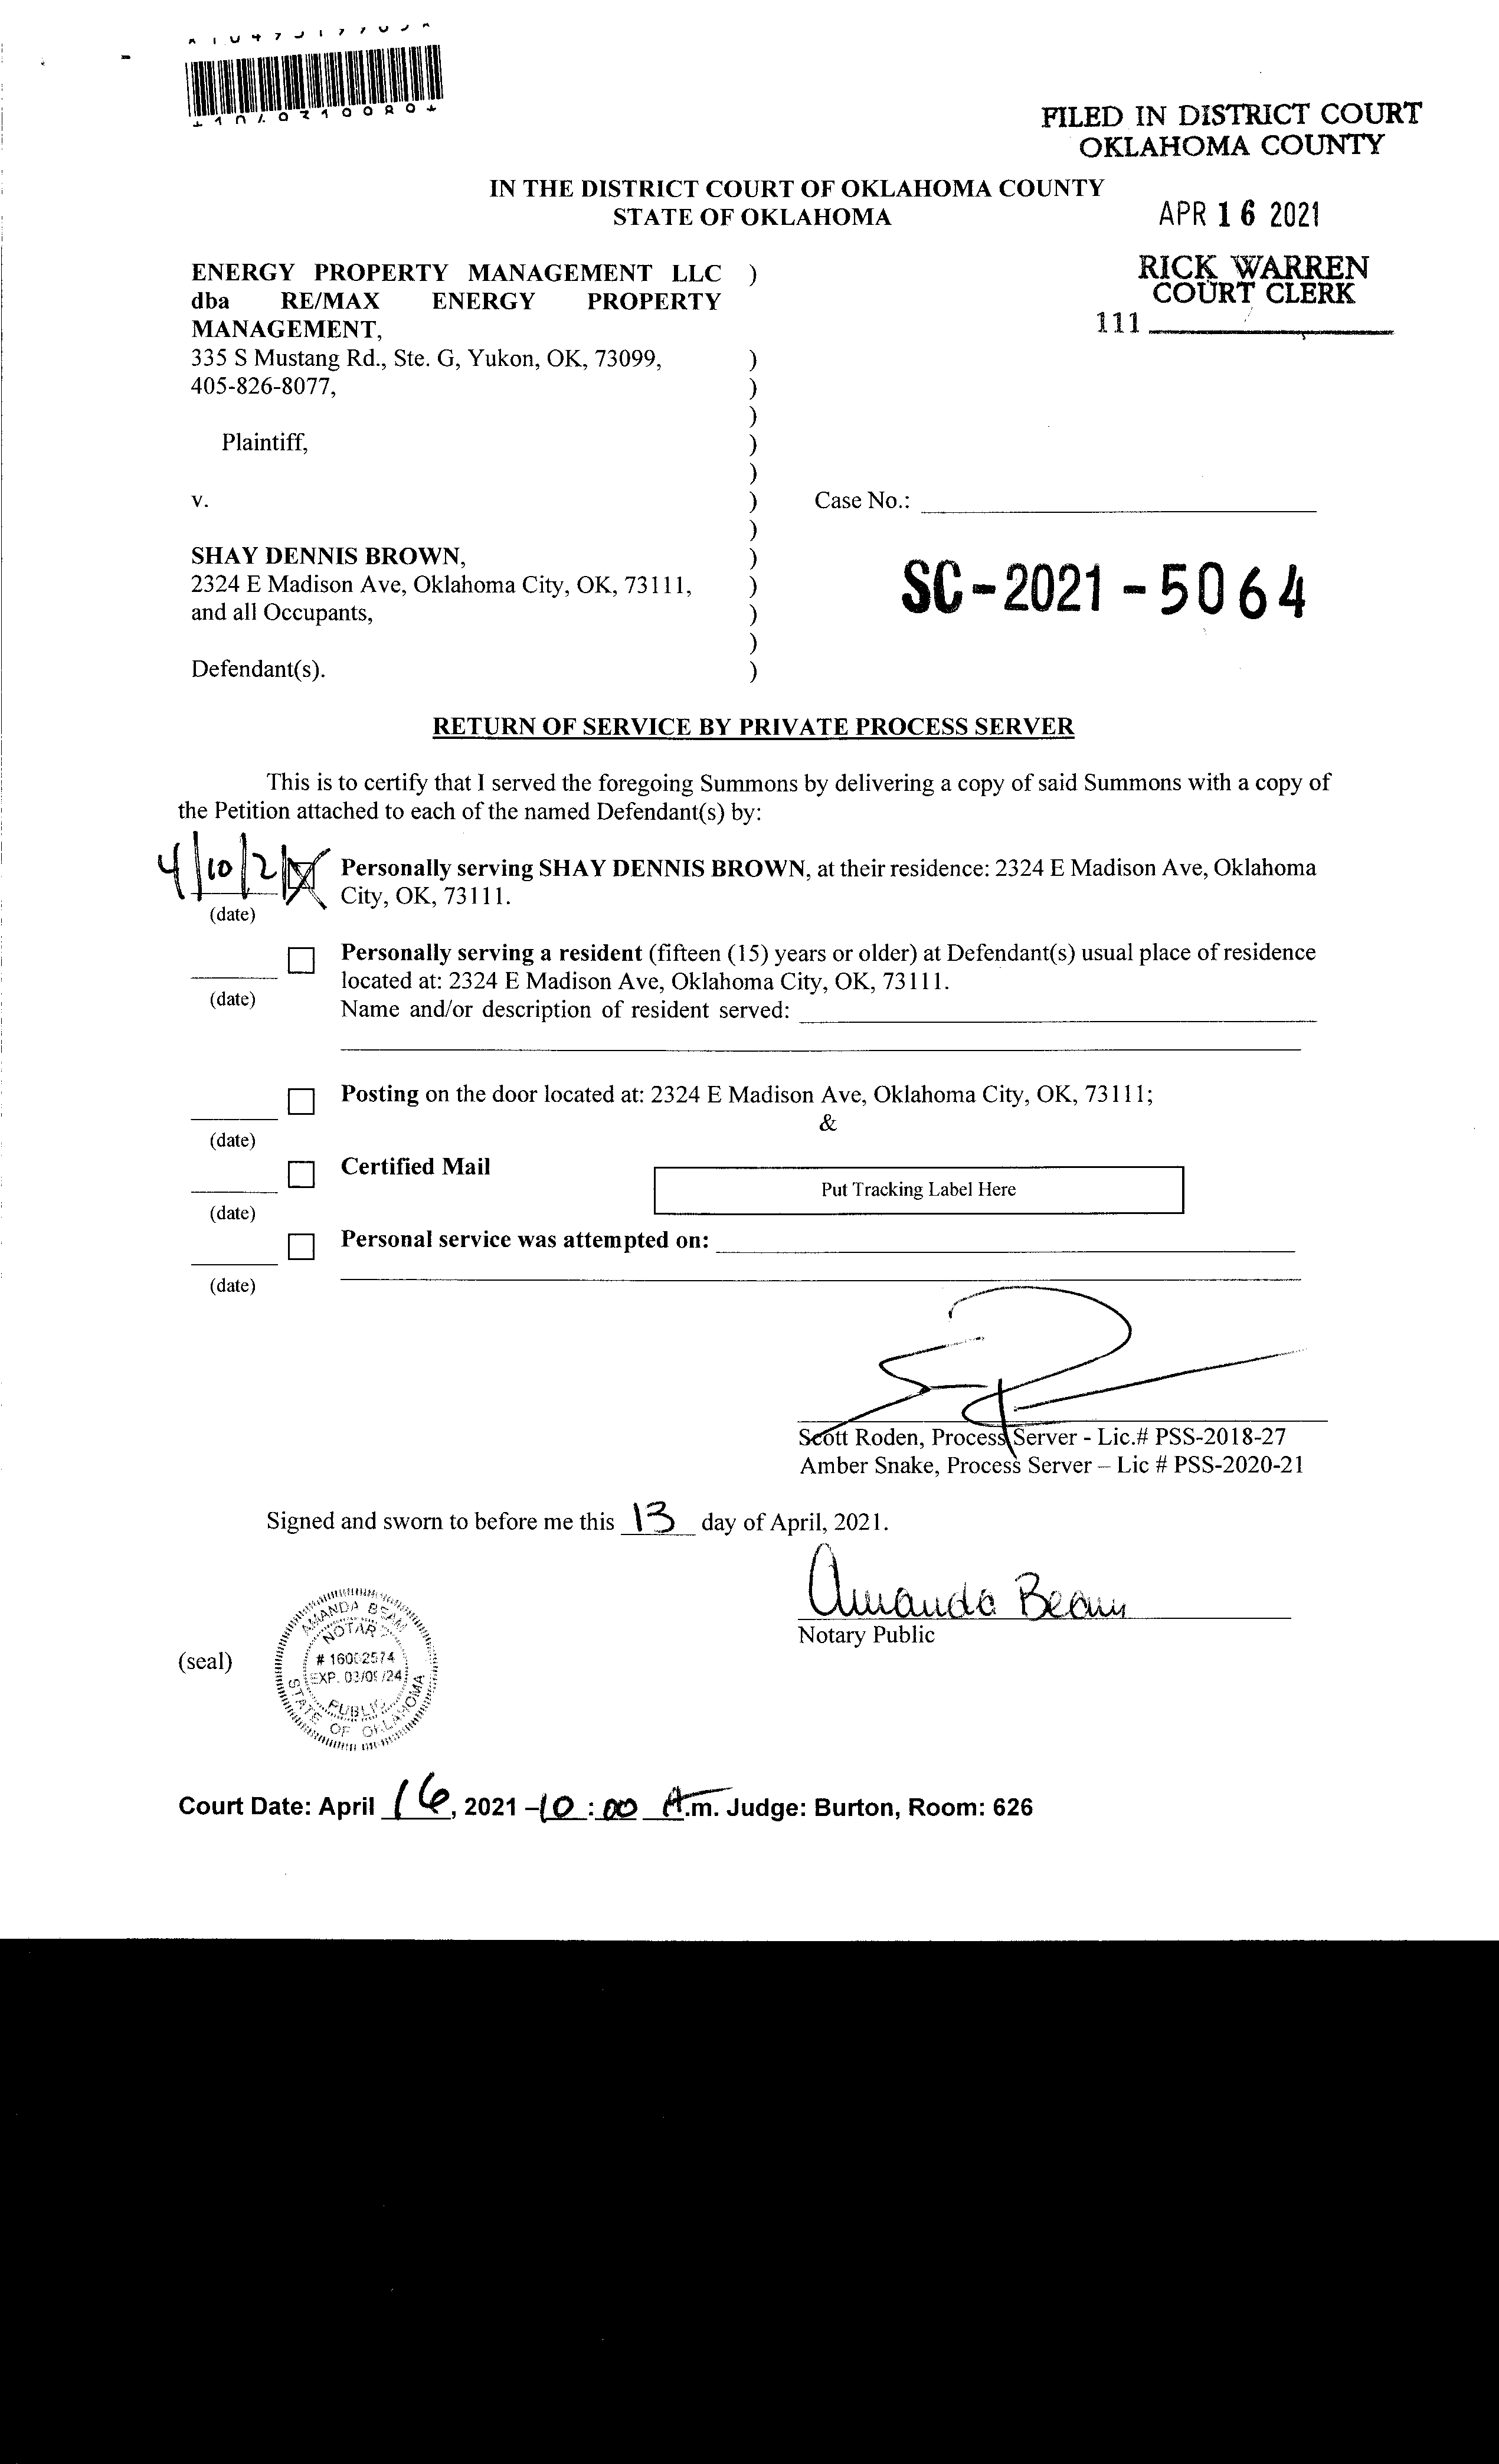 FILED IN DISTRICT COURT
OKLAHOMA COUNTY
IN THE DISTRICT COURT OF OKLAHOMA COUNTY
STATE OF OKLAHOMA
APR 16 2021
RICK WARREN
COURT CLERK
111
ENERGY PROPERTY MANAGEMENT LLC )
dba RE/MAX ENERGY PROPERTY
MANAGEMENT,
335 S Mustang Rd., Ste. G, Yukon, OK, 73099, )
405-826-8077, )
)
Plaintiff, )
)
v. ) Case No.:
)
SHAY DENNIS BROWN, )
2324 E Madison Ave, Oklahoma City, OK, 73111, )
and all Occupants, )
)
Defendant(s). )
SC-2021-5064
RETURN OF SERVICE BY PRIVATE PROCESS SERVER
This is to certify that I served the foregoing Summons by delivering a copy of said Summons with a copy of
the Petition attached to each of the named Defendant(s) by:
4/10/21 Personally serving SHAY DENNIS BROWN, at their residence: 2324 E Madison Ave, Oklahoma
City, OK, 73111.
(date)
Personally serving a resident (fifteen (15) years or older) at Defendant(s) usual place of residence
located at: 2324 E Madison Ave, Oklahoma City, OK, 73111.
(date)
Name and/or description of resident served:
Posting on the door located at: 2324 E Madison Ave, Oklahoma City, OK, 73111;
&
(date)
Certified Mail
Put Tracking Label Here
(date)
Personal service was attempted on:
(date)
Scott Roden, Process Server - Lic.# PSS-2018-27
Amber Snake, Process Server – Lic # PSS-2020-21
Signed and sworn to before me this 13 day of April, 2021.
Amanda Beam
Notary Public
(seal)
AMANDA BEAM
NOTARY
EXP.
PUBLIC
STATE OF OKLAHOMA
Court Date: April 16, 2021 – 10:00 A.m. Judge: Burton, Room: 626